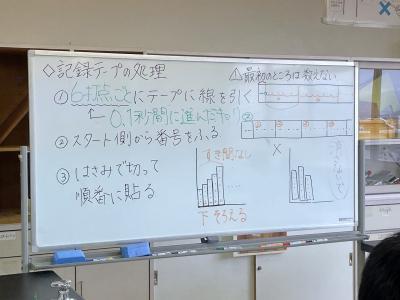 ◇記録テープの処理
⚠最初のところは数えない
①6打点ごとにテープに線を引く
↑0.1秒間に進んだキョリ
②スタート側から番号をふる
③はさみで切って
順番に貼る
②
すき間なし
×
下そろえる